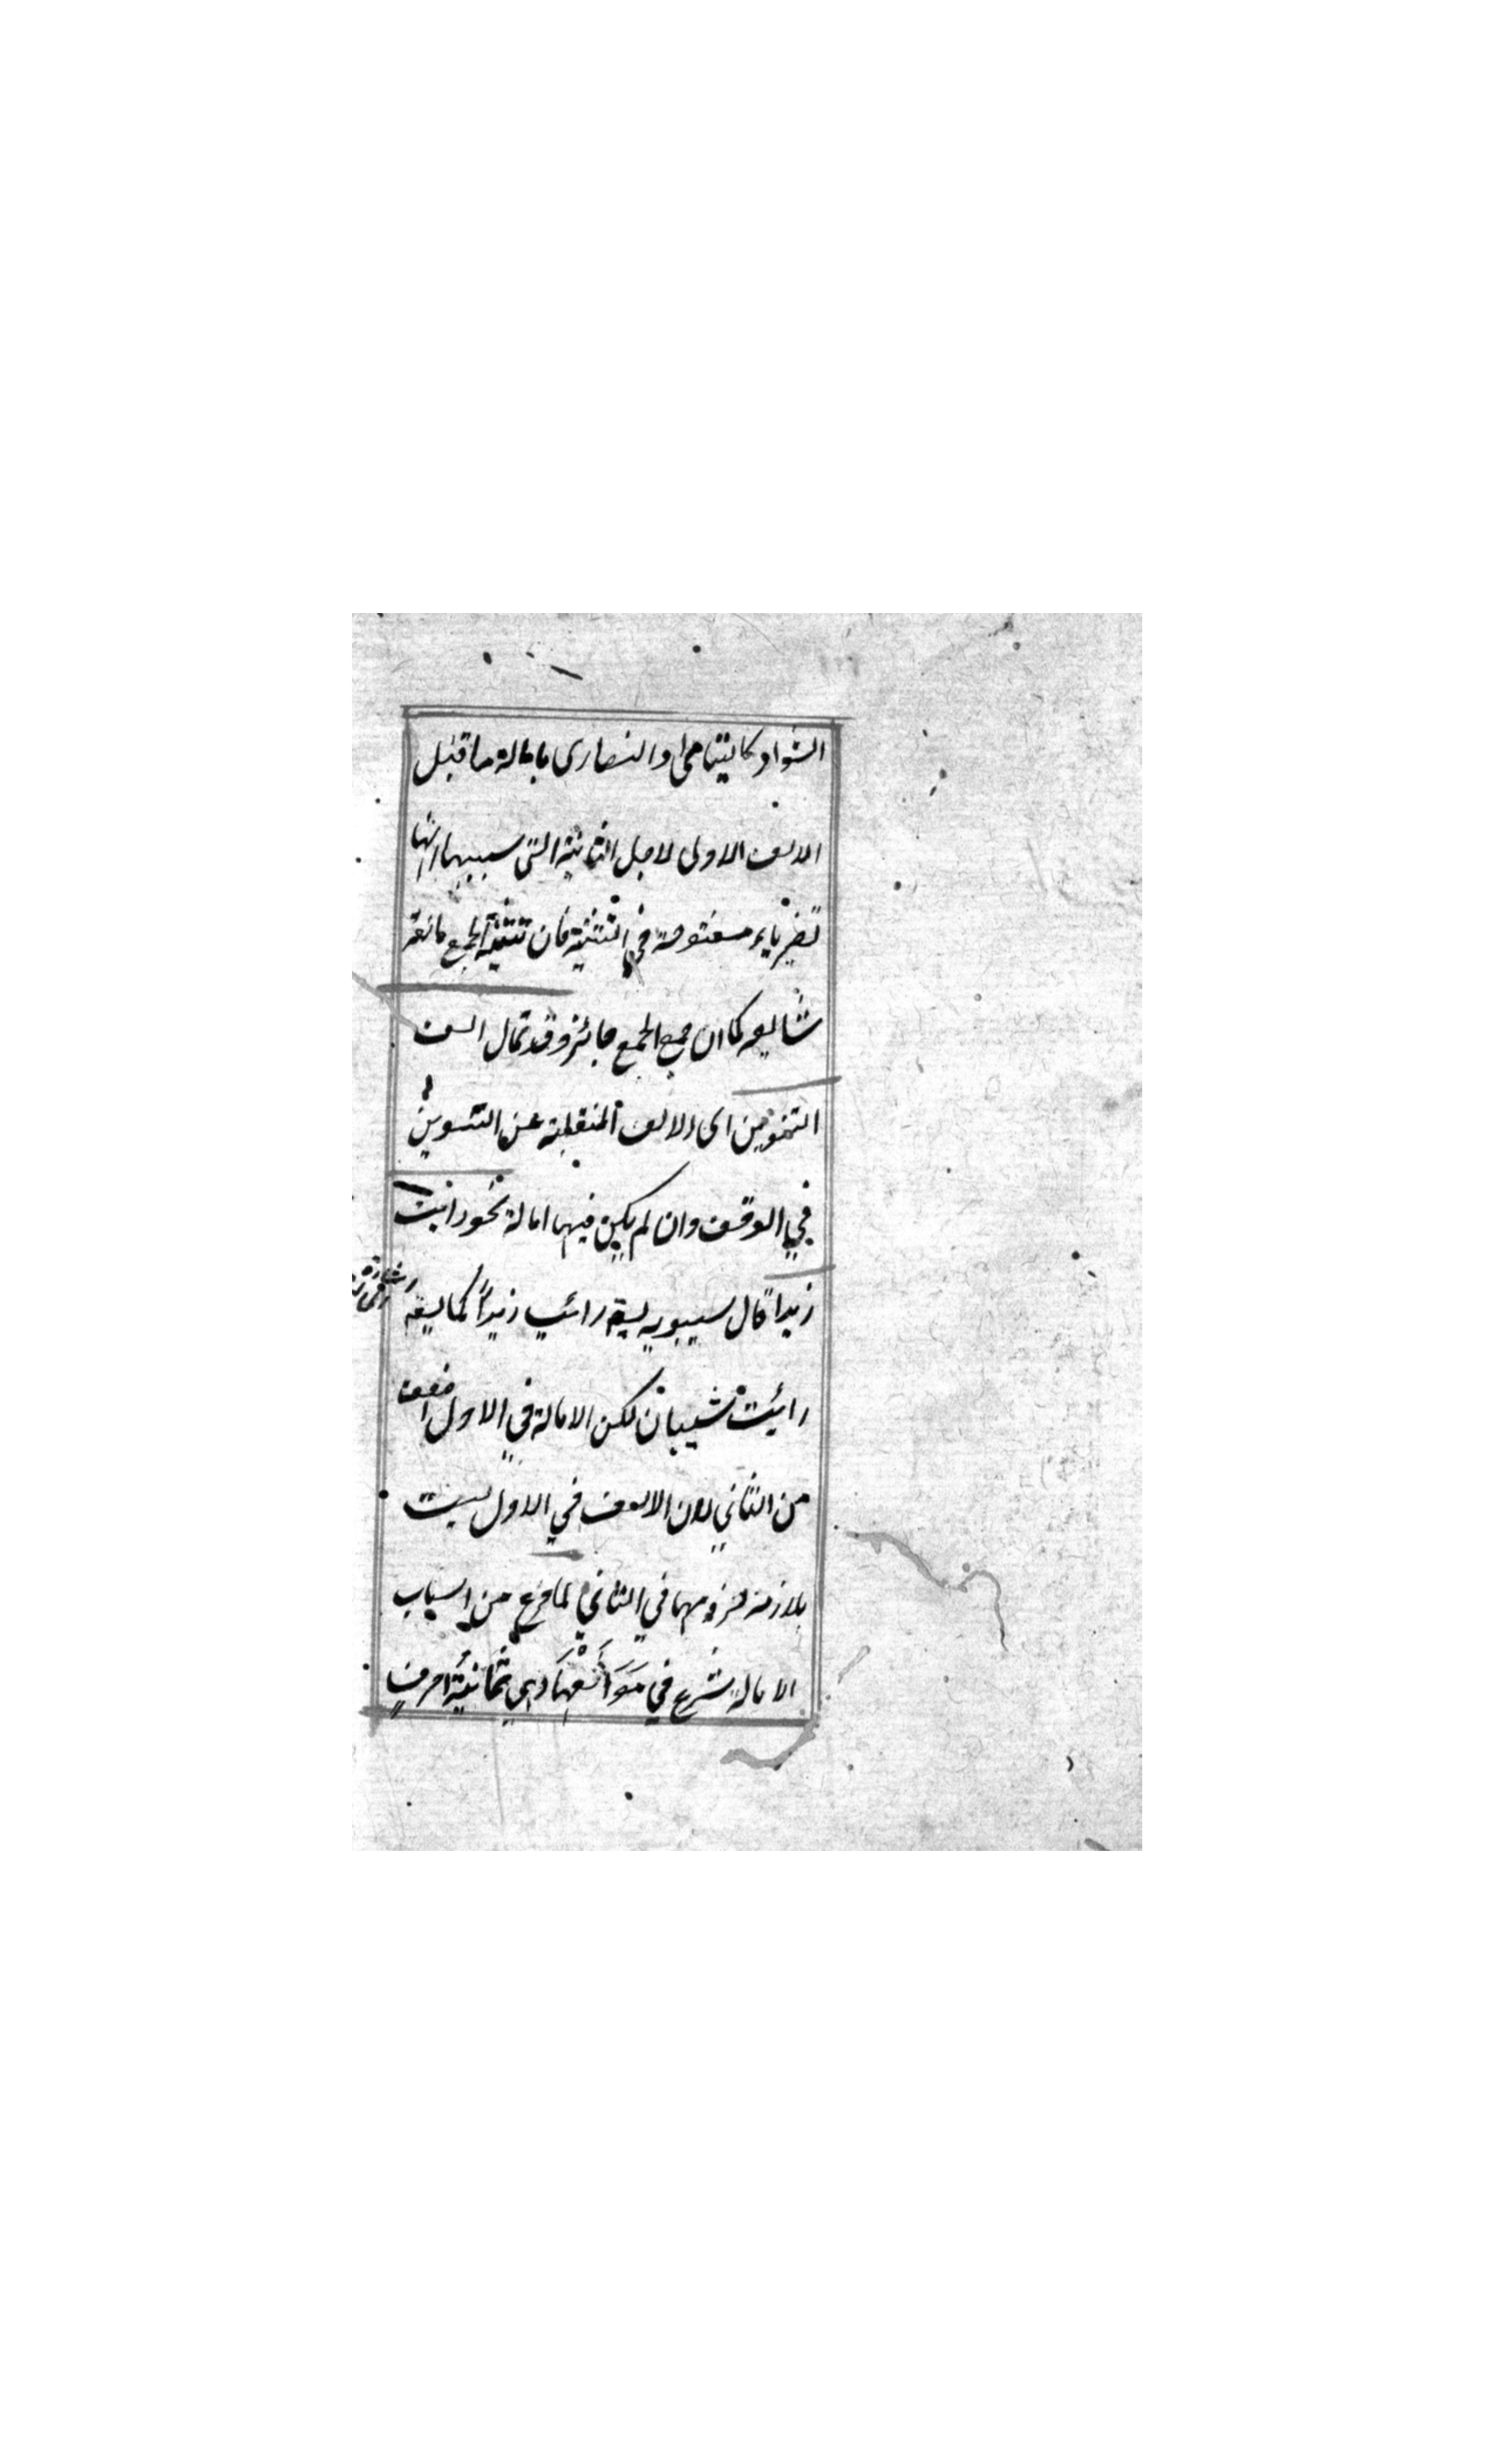 الشواذ كاليتامى والنصارى بامالة ما قبل
الالف الاولى لاجل الثانية التى سببها انها
تصير ياء مفتوحة في التثنية فان تثنية الجمع
شايعه كما ان جمع الجمع جائز وقد تمال الف
التنوين اى الالف المنقلبة عن التنوين
في الوقف وان لم يكن فيها امالة نحو رأيت
زيدا قال سيبويه يقال رائيت زيداً كما يقال
رائيت شيبان لكن الامالة في الاول اضعف
من الثاني لان الالف في الاول ليست
بلازمة لزومها في الثاني لما فرغ من اسباب
الامالة شرع في مَوَانعُهَا وهي ثمانيةُ احرف